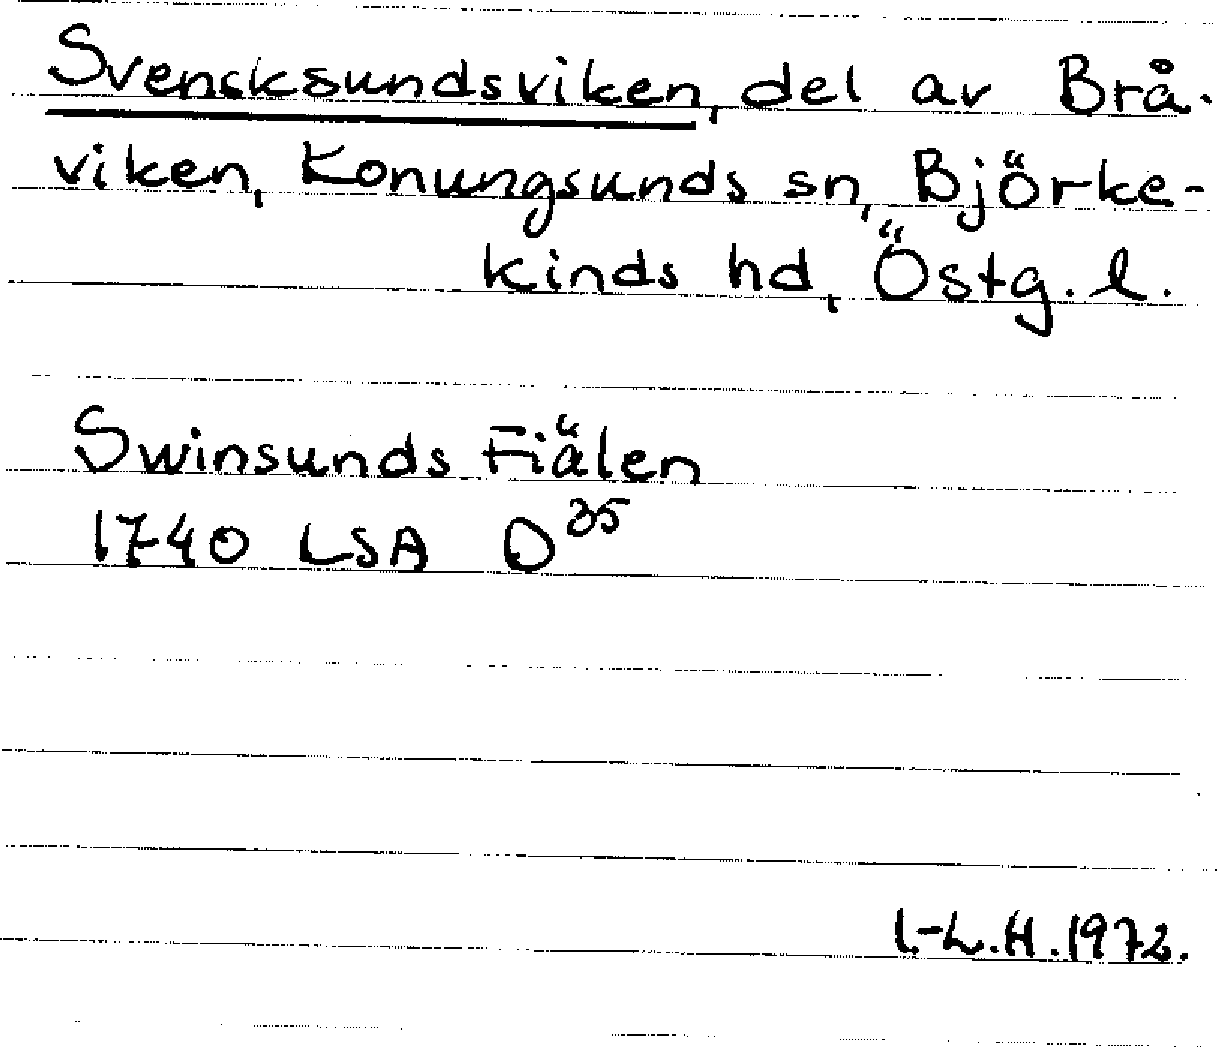 Svensksundsviken, del av Brå-
viken, Konungsunds sn, Björke-
kinds hd, Östg. l.
Swinsunds Fiälen
1740 LSA D 35
I.-L.H. 1972.